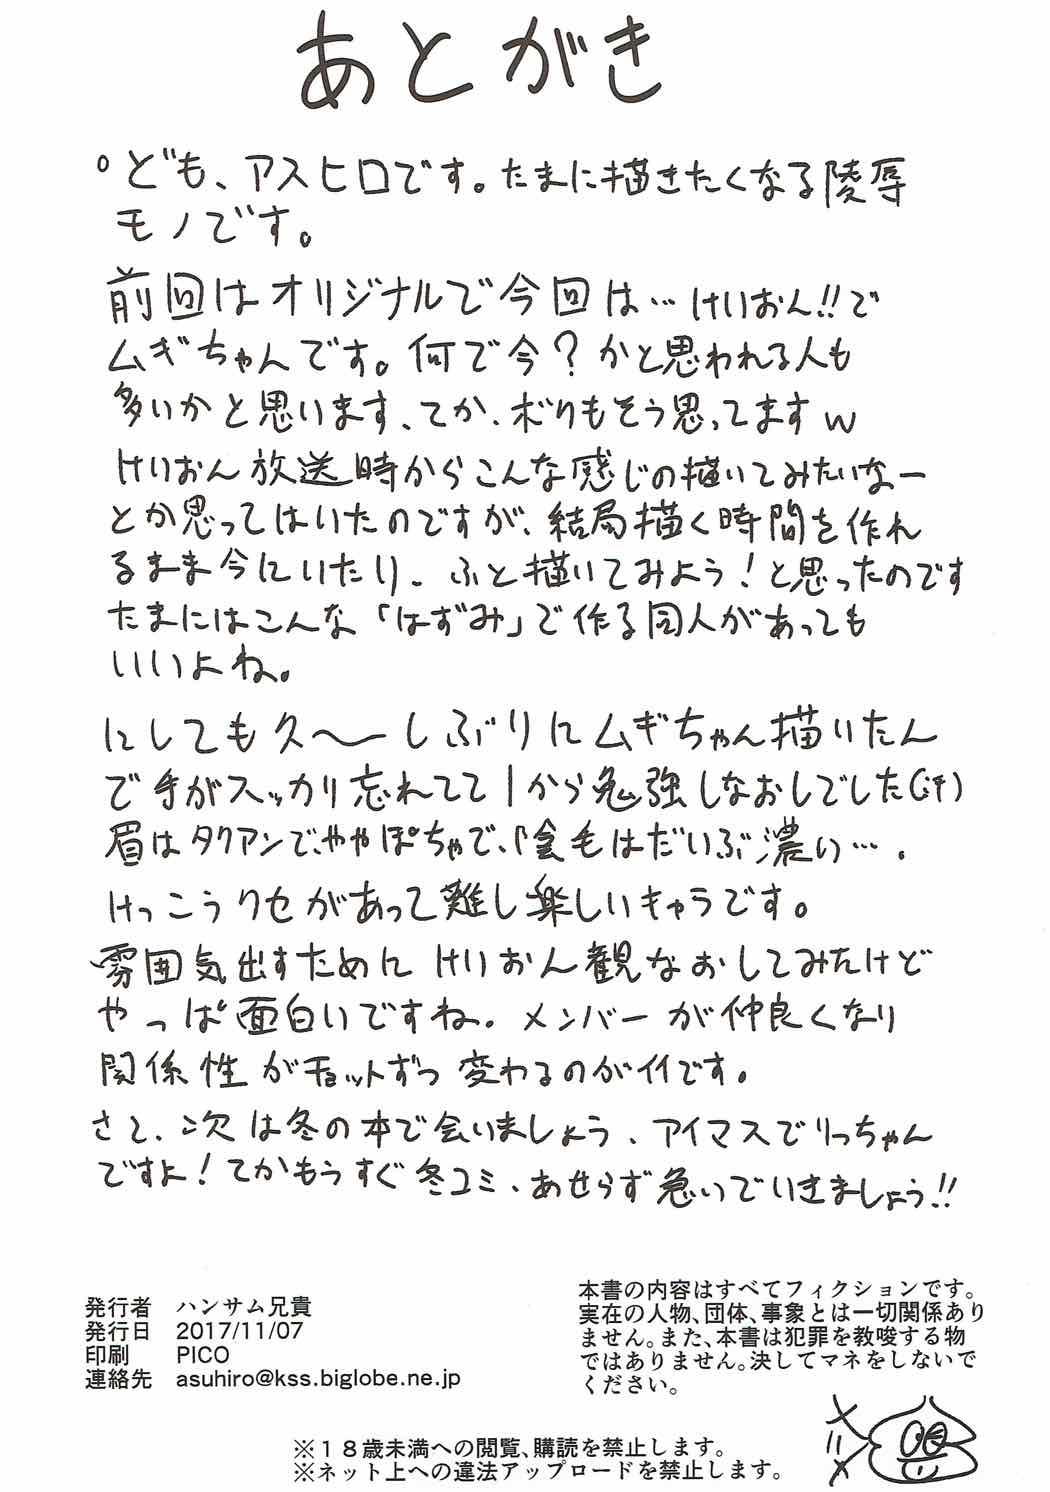 あとがき
°ども、アスヒロです。たまに描きたくなる陵辱
モノです。
前回はオリジナルで今回は…けいおん!!で
ムギちゃんです。何で今？かと思われる人も
多いかと思います、てか、ボクもそう思ってますw
けいおん放送時からこんな感じの描いてみたいなー
とか思ってはいたのですが、結局描く時間を作れ
るまま今にいたり、ふと描いてみよう！と思ったのです
たまにはこんな「はずみ」で作る同人があっても
いいよね。
にしても久〜しぶりにムギちゃん描いたん
で手がスッカリ忘れてて1から勉強しなおしでした(汗)
眉はタクアンで、ややぽちゃで、
けっこうクセがあって難し楽しいキャラです。
雰囲気出すためにけいおん観なおしてみたけど
やっぱ面白いですね。メンバーが仲良くなり
関係性がチョットずつ変わるのがイイです。
さて、次は冬の本で会いましょう、アイマスでりっちゃん
ですよ！てかもうすぐ冬コミ、あせらず急いでいきましょう!!
発行者 ハンサム兄貴
発行日 2017/11/07
印刷 PICO
連絡先 asuhiro@kss.biglobe.ne.jp
本書の内容はすべてフィクションです。
実在の人物、団体、事象とは一切関係あり
ません。また、本書は犯罪を教唆する物
ではありません。決してマネをしないで
ください。
※１８歳未満への閲覧、購読を禁止します。
※ネット上への違法アップロードを禁止します。